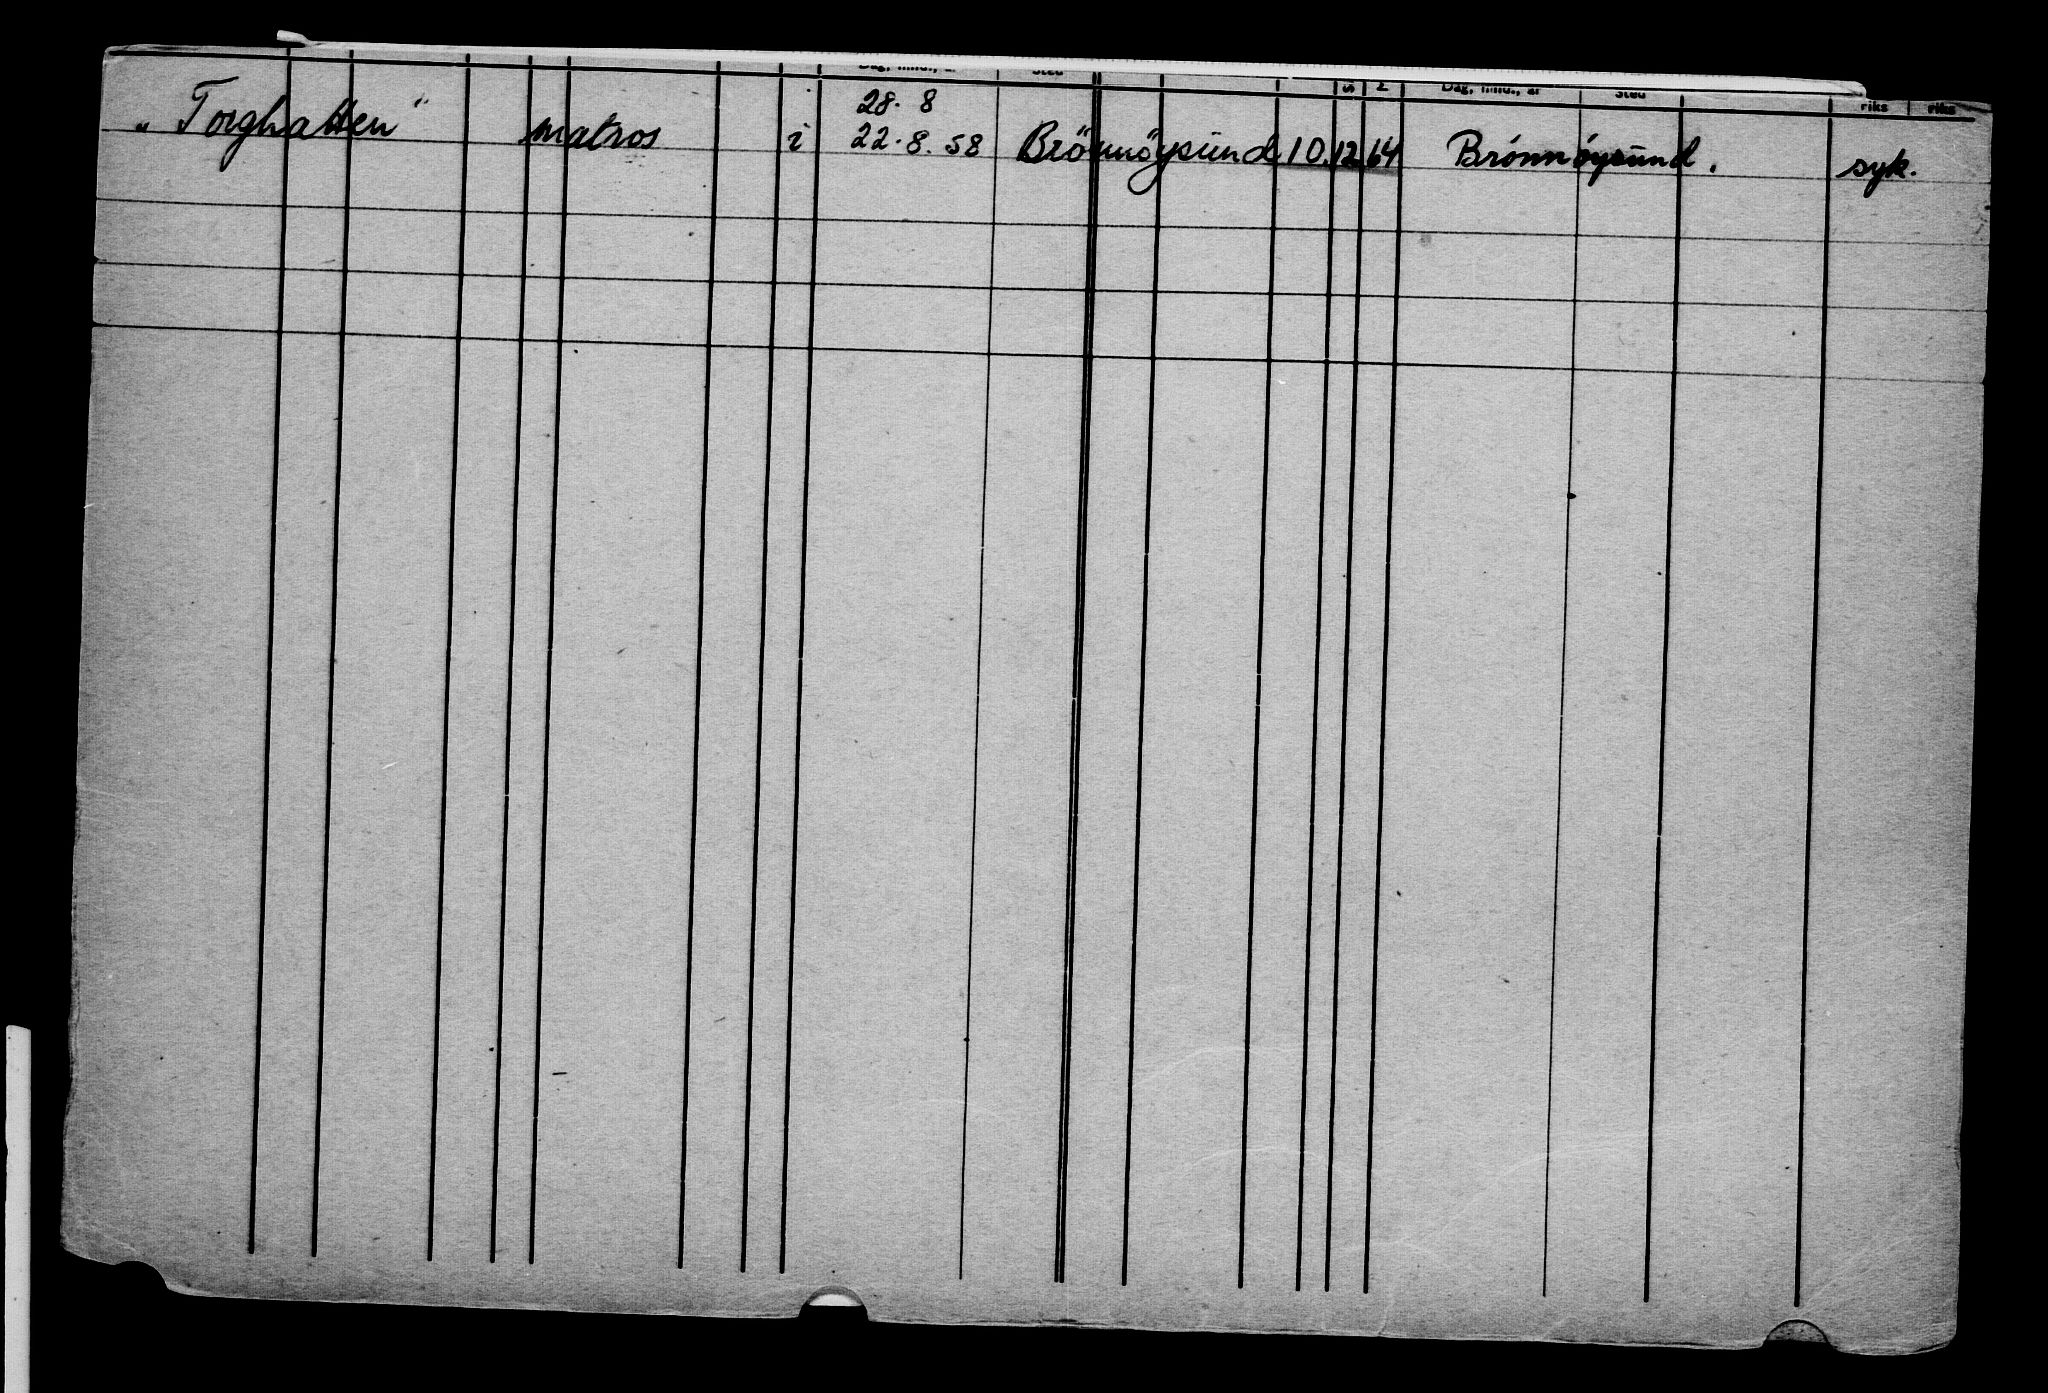 Dag, mnd., år Sted S M Dag, mnd., år Sted riks riks
28. 8
„Torghatten" matros i 22.8.58 Brönnöysund 10.12.64 Brónnóysund. syk.